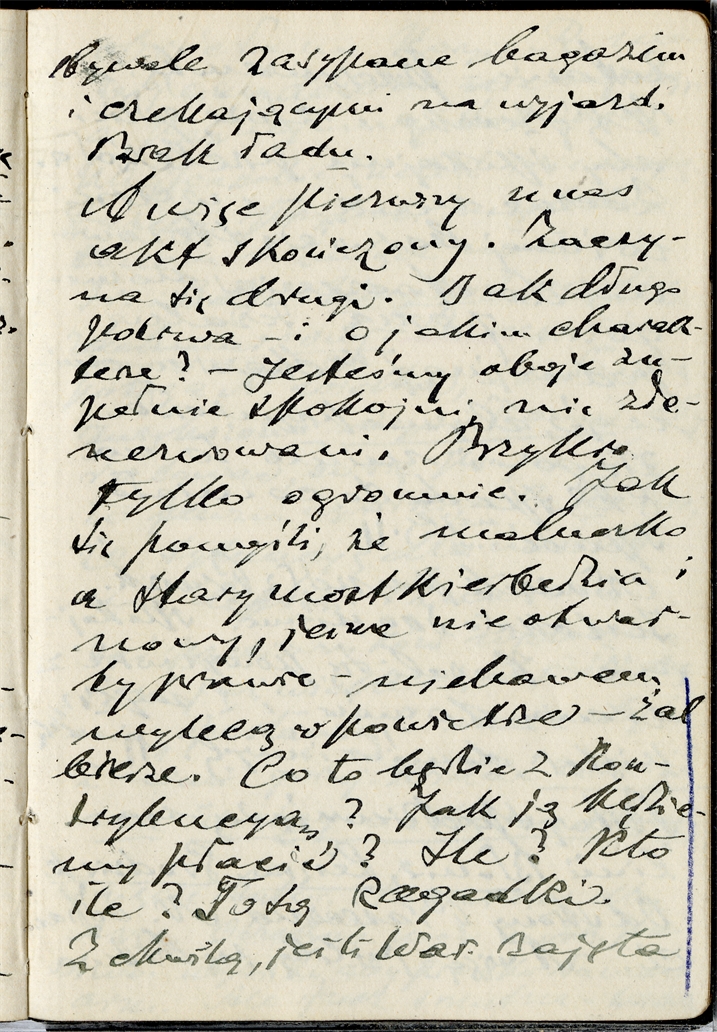 bywale zasypane bagażem
i czekającymi na wyjazd.
Brak ładu.
A więc pierwszy u nas
akt skończony. Zaczy-
na się drugi. Jak długo
potrwa – i o jakim charak-
terze? – Jesteśmy oboje zu-
pełnie spokojni, nie zde-
nerwowani. Przykro
tylko ogromnie. Jak
się pomyśli, że malućko
a stary most Kierbedzia i
nowy, jeszcze nie otwar-
ty prawie – niebawem
wylecą w powietrze – żal
bierze. Co to będzie z kon-
trybucyą? Jak ją będzie-
my płacić? Ile? Kto
ile? To są zagadki.
Z chwilą, jeśli War. zajęta